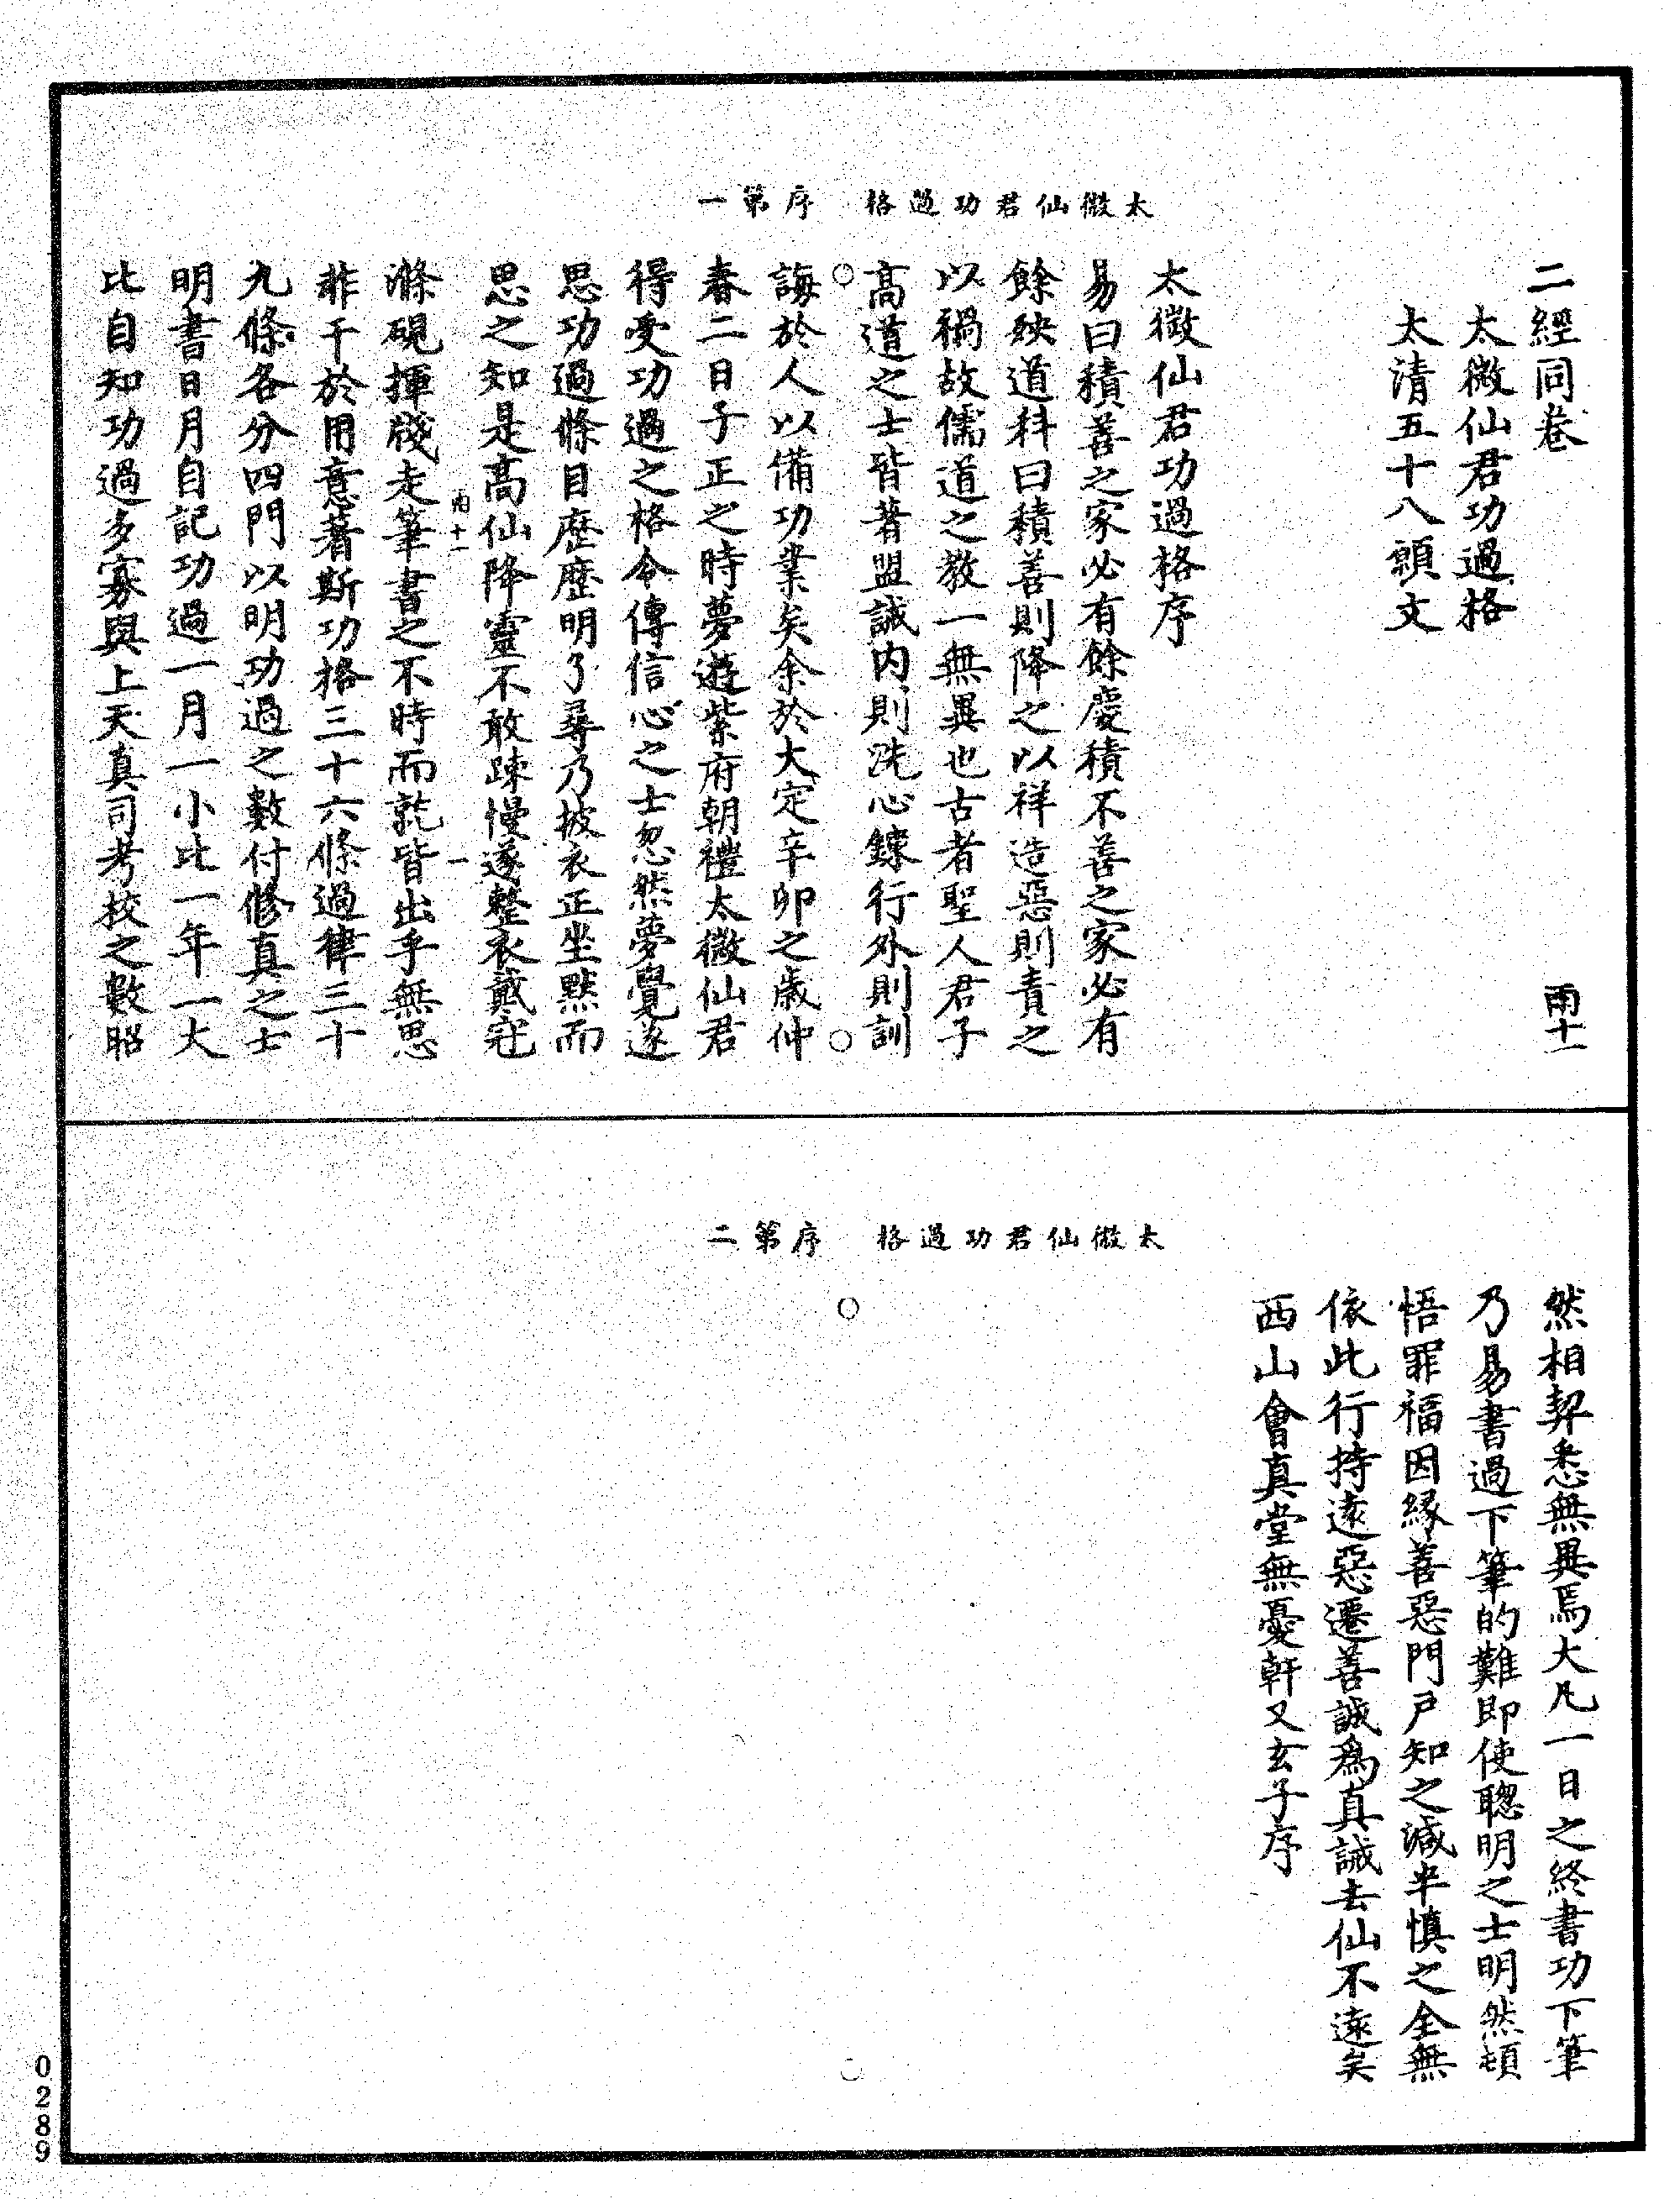 太微仙君功過格　序第一
二經同卷　雨十一
太微仙君功過格
太清五十八願文
太微仙君功過格序
易曰積善之家必有餘慶積不善之家必有
餘殃道科曰積善則降之以祥造惡則責之
以禍故儒道之教一無異也古者聖人君子
高道之士皆著盟誡内則洗心鍊行外則訓
誨於人以備功業矣余於大定辛卯之歲仲
春二日子正之時夢遊紫府朝禮太微仙君
得受功過之格令傳信心之士忽然夢覺遂
思功過條目歷歷明了尋乃披衣正坐默而
思之知是高仙降靈不敢踈慢遂整衣戴冠
雨十一　一
滌硯揮牋走筆書之不時而就皆出乎無思
非干於用意著斯功格三十六條過律三十
九條各分四門以明功過之數付修真之士
明書日月自記功過一月一小比一年一大
比自知功過多寡與上天真司考校之數昭
太微仙君功過格　序第二
然相契悉無異焉大凡一日之終書功下筆
乃易書過下筆的難即使聰明之士明然頓
悟罪福因緣善惡門戶知之減半慎之全無
依此行持遠惡遷善誠爲真誡去仙不遠矣
西山會真堂無憂軒又玄子序
0289